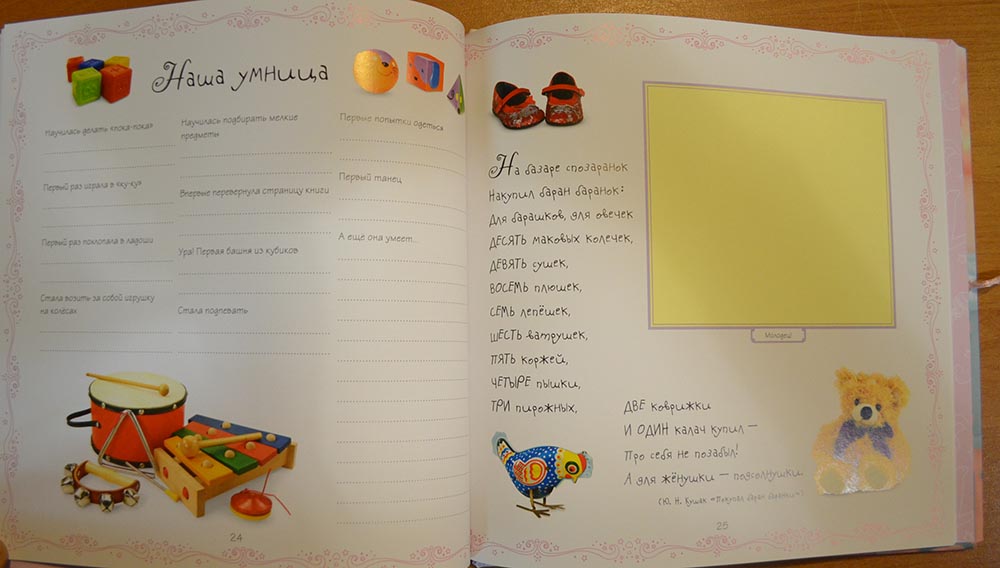 Наша умница
Научилась делать «пока-пока»
Первый раз играла в «ку-ку»
Первый раз похлопала в ладоши
Стала возить за собой игрушку
на колёсах
Научилась подбирать мелкие
предметы
Впервые перевернула страницу книги
Ура! Первая башня из кубиков
Стала подпевать
Первые попытки одеться
Первый танец
А ещё она умеет...
24
На базаре спозаранок
Накупил баран баранок:
Для барашков, для овечек
ДЕСЯТЬ маковых колечек,
ДЕВЯТЬ сушек,
ВОСЕМЬ плюшек,
СЕМЬ лепёшек,
ШЕСТЬ ватрушек,
ПЯТЬ коржей,
ЧЕТЫРЕ пышки,
ТРИ пирожных,
ДВЕ коврижки
И ОДИН калач купил —
Про себя не позабыл!
А для жёнушки — подсолнушки.
(Ю. Н. Кушак «Покупал баран баранки»)
Молодец!
25